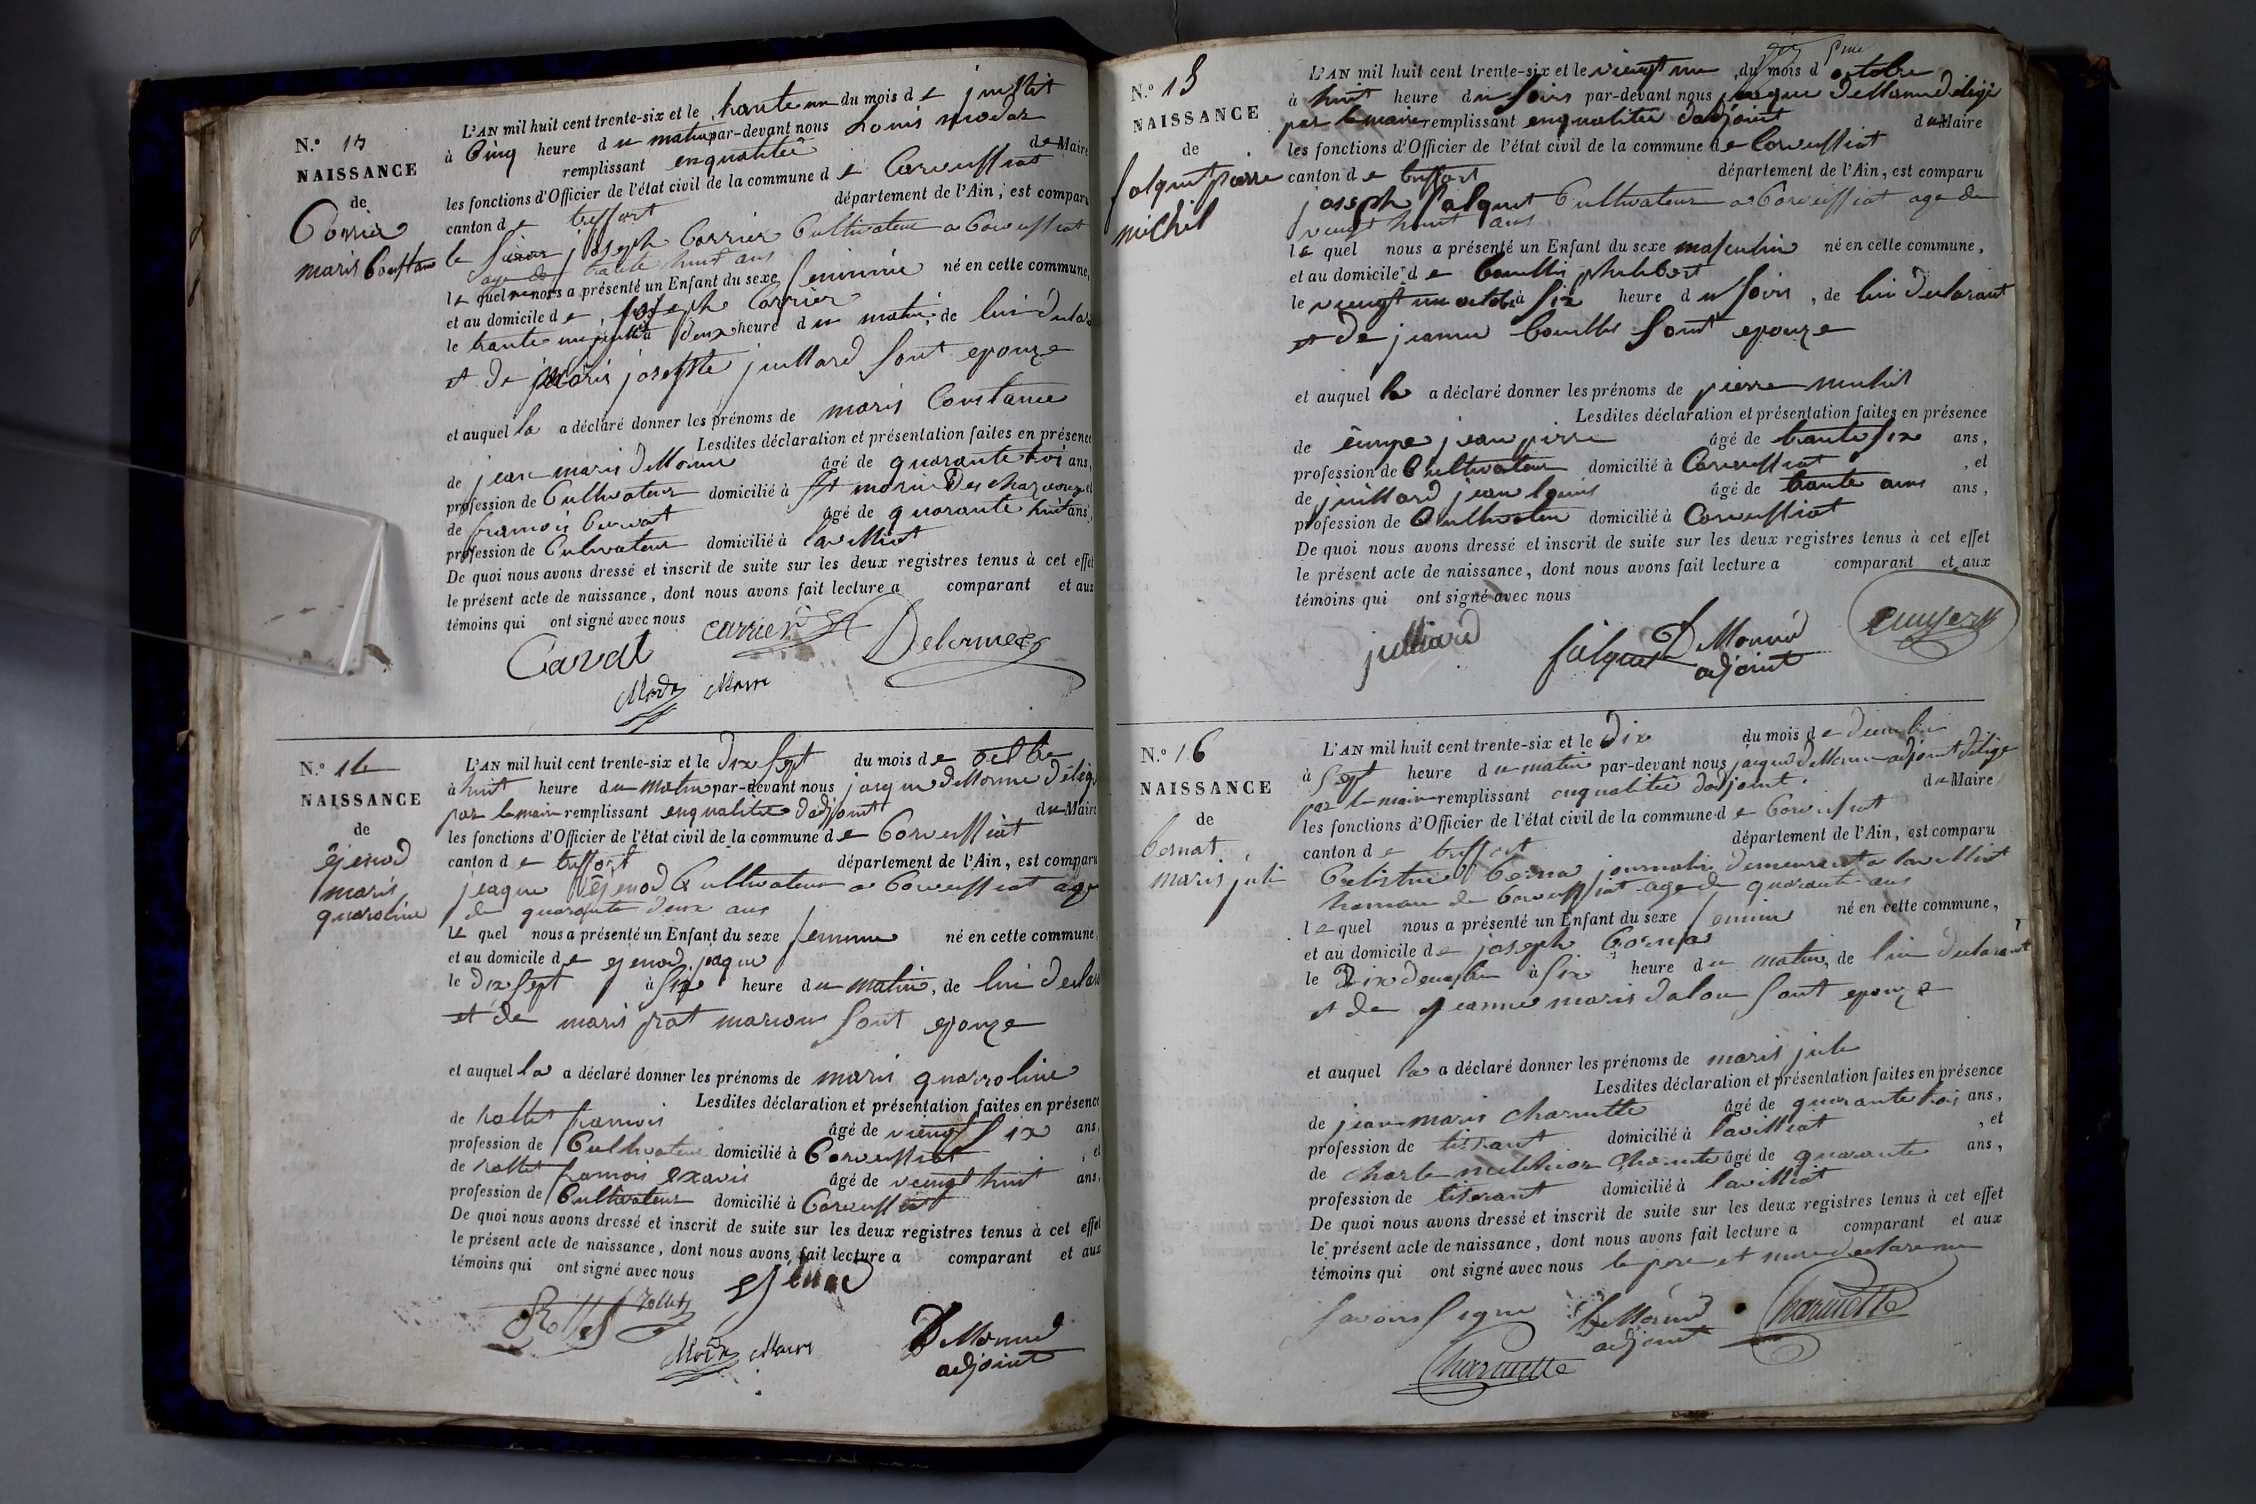 N.º 13
NAISSANCE
de
Carrier
marie Constance
L'AN mil huit cent trente-six et le trante un du mois de juillit
à Cinq heure du matin par-devant nous Louis modas
remplissant enqualitée de Maire
les fonctions d'Officier de l'état civil de la commune de Corveissiat
canton de treffort département de l'Ain, est comparu
le joseph Carrier Cultivateur a Corveissiat
age de trante huit ans
le quel nous a présenté un Enfant du sexe feminin né en cette commune,
et au domicile de joseph Carrier
le trante un juillit à deux heure du matin, de lui declarant
et de marie josephte juillard sont epouze
et auquel la a déclaré donner les prénoms de marie Constance
Lesdites déclaration et présentation faites en présence
de jean marie dellorme âgé de quarante troi ans,
profession de Cultivateur domicilié à St morice des chazeaux et
de francois âgé de quarante huit ans,
profession de Cultivateur domicilié à lavilliat
De quoi nous avons dressé et inscrit de suite sur les deux registres tenus à cet effet
le présent acte de naissance, dont nous avons fait lecture a comparant et aux
témoins qui ont signé avec nous
carrier
Delorme
Maire
N.º 14
NAISSANCE
de
éjenod
marie
quaroline
L'AN mil huit cent trente-six et le dix sept du mois de octbre
à huit heure du matin par-devant nous jacque dellorme délégé
par le maire remplissant enqualitée d'adjoint du Maire
les fonctions d'Officier de l'état civil de la commune de Corveissiat
canton de treffort département de l'Ain, est comparu
jeaque éjenod Cultivateur a Corveissiat age
de quarante deux ans
le quel nous a présenté un Enfant du sexe feminin né en cette commune,
et au domicile de ejenod jeaque
le dix sept à six heure du matin, de lui declarant
et de marie prat marion sont epouze
et auquel la a déclaré donner les prénoms de marie quarroline
Lesdites déclaration et présentation faites en présence
de rollet francois âgé de viengt six ans,
profession de Cultivateur domicilié à Corveissiat, et
de rollet francois exavie âgé de viengt huit ans,
profession de Cultivateur domicilié à Corveissiat
De quoi nous avons dressé et inscrit de suite sur les deux registres tenus à cet effet
le présent acte de naissance, dont nous avons fait lecture a comparant et aux
témoins qui ont signé avec nous
ejenod
Rollet rollet
Maire
Dellorme
adjoint
N.º 15
NAISSANCE
de
falquet pierre
michel
L'AN mil huit cent trente-six et le viengt un du mois d'octobre
à huit heure du soir par-devant nous jacque dellorme délégé
par le maire remplissant enqualitée dadjoint du Maire
les fonctions d'Officier de l'état civil de la commune de Corveissiat
canton de treffort département de l'Ain, est comparu
joseph falquet Cultivateur a Corveissiat age de
viengt huit ans
le quel nous a présenté un Enfant du sexe masculin né en cette commune,
et au domicile de philibert
le viengt un octobre à six heure du soir, de lui declarant
et de jeanne sont epouze
et auquel la a déclaré donner les prénoms de pierre michel
Lesdites déclaration et présentation faites en présence
de jean pierre âgé de trante six ans,
profession de Cultivateur domicilié à Corveissiat, et
de juillard jean louis âgé de trante ans,
profession de Cultivateur domicilié à Corveissiat
De quoi nous avons dressé et inscrit de suite sur les deux registres tenus à cet effet
le présent acte de naissance, dont nous avons fait lecture a comparant et aux
témoins qui ont signé avec nous
julliard
falquet
Dellorme
adjoint
N.º 16
NAISSANCE
de
bernat
marie juli
L'AN mil huit cent trente-six et le dix du mois de decembre
à sept heure du matin par-devant nous jacque dellorme adjoint délégé
par le maire remplissant enqualitée dadjoint du Maire
les fonctions d'Officier de l'état civil de la commune de Corveissiat
canton de treffort département de l'Ain, est comparu
journalie demeurant a lavilliat
hamau de Corveissiat age de quarante ans
le quel nous a présenté un Enfant du sexe feminin né en cette commune,
et au domicile de joseph
le dix decembre à six heure du matin, de lui declarant
et de jeanne marie dalou sont epouze
et auquel la a déclaré donner les prénoms de marie juli
Lesdites déclaration et présentation faites en présence
de jean marie charnette âgé de quarante trois ans,
profession de tisserant domicilié à lavilliat, et
de charle melchior âgé de quarante ans,
profession de tisserant domicilié à lavilliat
De quoi nous avons dressé et inscrit de suite sur les deux registres tenus à cet effet
le présent acte de naissance, dont nous avons fait lecture a comparant et aux
témoins qui ont signé avec nous le pere et
savoir signe
Dellorme
adjoint
Charnette
Charnette